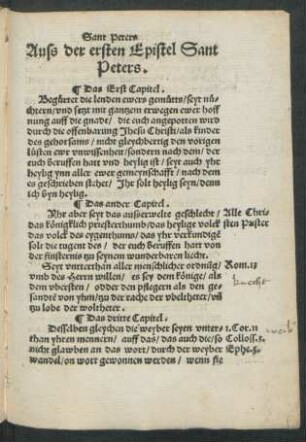 Sant Peters
Auß der ersten Epistel Sant
Peters.
¶ Das Erst Capitel.
Begürtet die lenden ewers gemütts/ seyt nüch
tern/ vnd setzt mit gantzem erwegen ewer hoff
nung auff die gnade/ die euch angepotten wird
durch die offenbarung Jhesu Christi/ als kinder
des gehorsams/ nicht gleychbertig den vorigen
lüsten ewr vnwissenheit/ sondern nach dem/ der
euch beruffen hatt vnd heylig ist/ seyt auch yhr
heylig ynn aller ewer gemeynschafft/ nach dem
es geschrieben stehet/ Jhr solt heylig seyn/ denn
ich byn heylig.
¶ Das ander Capitel.
Yhr aber seyt das außerwelte geschlecht/ Alle Chri
das königklich priesterthumb/ das heylige volck sten Prister
das volck des eygenthums/ das yhr verkündige
solt die tugent des/ der euch beruffen hatt von
der finsternis zu seynem wunderbaren liecht.
Seyt vnterthan aller menschlicher ordnüg/ Rom.13
vmb des Herrn willen/ es sey dem könige/ als
knecht
dem vbersten/ odder den pflegern als den ge-
sandtē von yhm/ zu der rache der vbelthetter/ vñ
zu lobe der wolthetter.
¶ Das dritte Capitel.
Desselben gleychen die weyber seyen vnter- 1.Cor.11
than yhren mennern/ auff das/ das auch die/ so Coloss.3.
nicht glawben an das wort/ durch der weyber Ephe.5.
wandel/ on wort gewonnen werden/ wenn sie